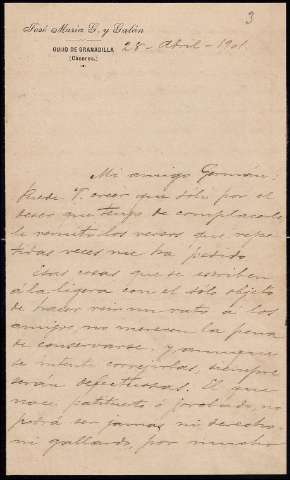 3
José María G. y Galán
GUIJO DE GRANADILLA
(Cáceres.)
28 - Abril - 1901
Mi amigo Germán:
Puede V. creer que sólo por el
deseo que tengo de complacerle
le remito los versos que repe-
tidas veces me ha pedido.
Esas cosas que se escriben
á la ligera con el sólo objeto
de hacer reir un rato á los
amigos, no merecen la pena
de conservarse, y aunque
se intente corregirlas, siempre
serán defectuosas. El que
nace patituerto ó jorobado, no
podrá ser jamás ni derecho
ni gallardo, por mucho